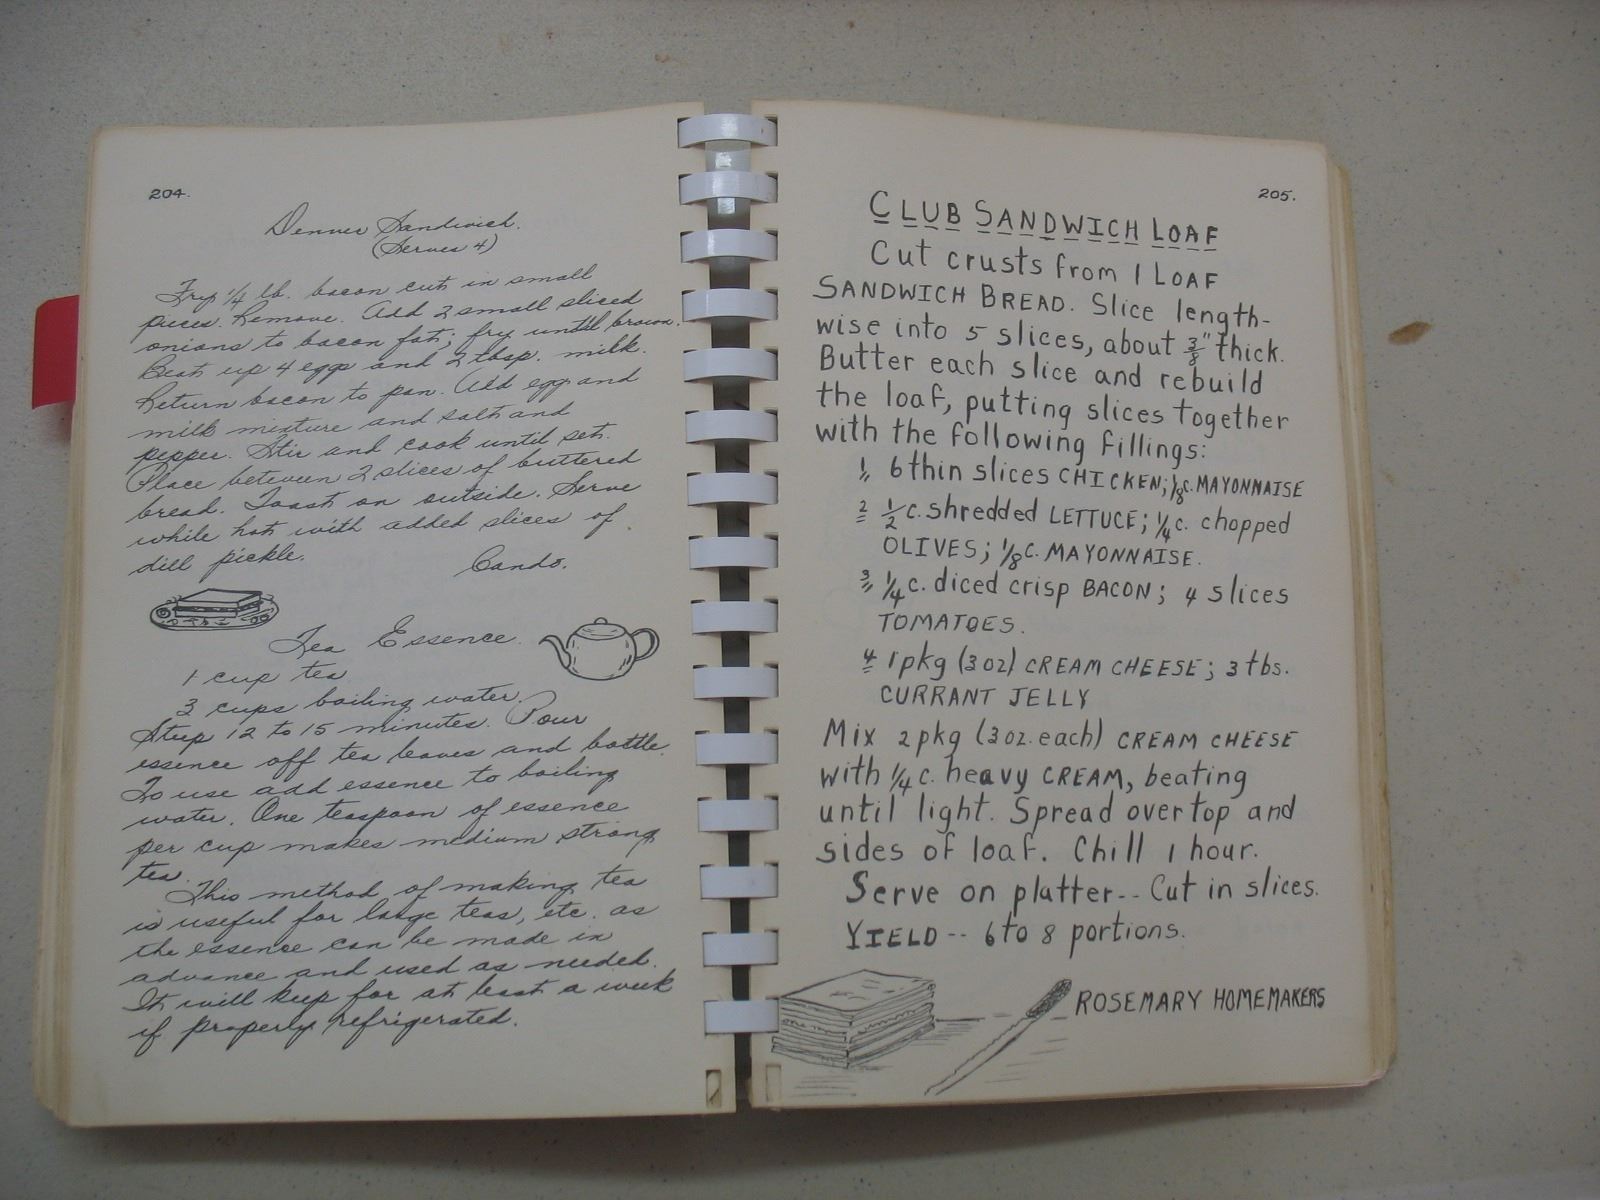 204.
Denver Sandwich.
(Serves 4)
Fry 1/4 lb. bacon cut in small
pieces. Remove. Add 2 small sliced
onions to bacon fat; fry until brown.
Beat up 4 eggs and 2 tbsp. milk.
Return bacon to pan. Add egg and
milk mixture and salt and
pepper. Stir and cook until set.
Place between 2 slices of buttered
bread. Toast on outside. Serve
while hot with added slices of
dill pickle.
Cando.
Tea Essence.
1 cup tea
3 cups boiling water.
Steep 12 to 15 minutes. Pour
essence off tea leaves and bottle.
To use add essence to boiling
water. One teaspoon of essence
per cup makes medium strong
tea.
This method of making tea
is useful for large teas, etc. as
the essence can be made in
advance and used as needed.
It will keep for at least a week
if properly refrigerated.
205.
CLUB SANDWICH LOAF
Cut crusts from 1 LOAF
SANDWICH BREAD. Slice length-
wise into 5 slices, about 3/8" thick.
Butter each slice and rebuild
the loaf, putting slices together
with the following fillings:
1, 6 thin slices CHICKEN; 1/8 c. MAYONNAISE
2 1/2 c. shredded LETTUCE; 1/4 c. chopped
OLIVES; 1/8 c. MAYONNAISE.
3, 1/4 c. diced crisp BACON; 4 slices
TOMATOES.
4 1 pkg (3 oz) CREAM CHEESE; 3 tbs.
CURRANT JELLY
Mix 2 pkg (3 oz. each) CREAM CHEESE
with 1/4 c. heavy CREAM, beating
until light. Spread over top and
sides of loaf. Chill 1 hour.
Serve on platter-- Cut in slices.
YIELD -- 6 to 8 portions.
ROSEMARY HOMEMAKERS